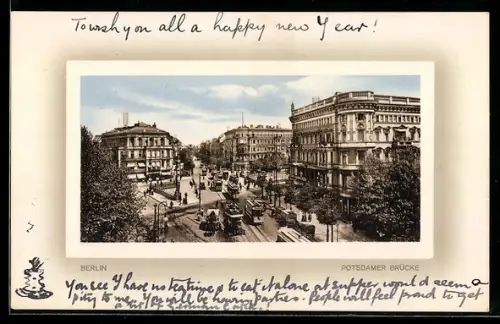 To wish you all a happy new Year!
BERLIN
POTSDAMER BRÜCKE
You see I have no to eat. Alone at supper would seem a
pity to me. You will be having parties. People will feel proud to get
a